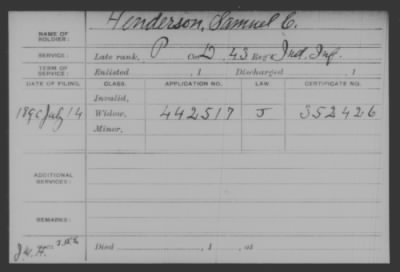 Henderson, Samuel C.
NAME OF SOLDIER:
SERVICE: Late rank, P Co. D, 43 Reg't Ind. Inf.
TERM OF SERVICE: Enlisted , 1 Discharged , 1
DATE OF FILING. CLASS. APPLICATION NO. LAW. CERTIFICATE NO.
Invalid,
1890 July 14 Widow, 442517 J 352426
Minor,
ADDITIONAL SERVICES:
REMARKS:
J.W.H.
Died , 1 , at